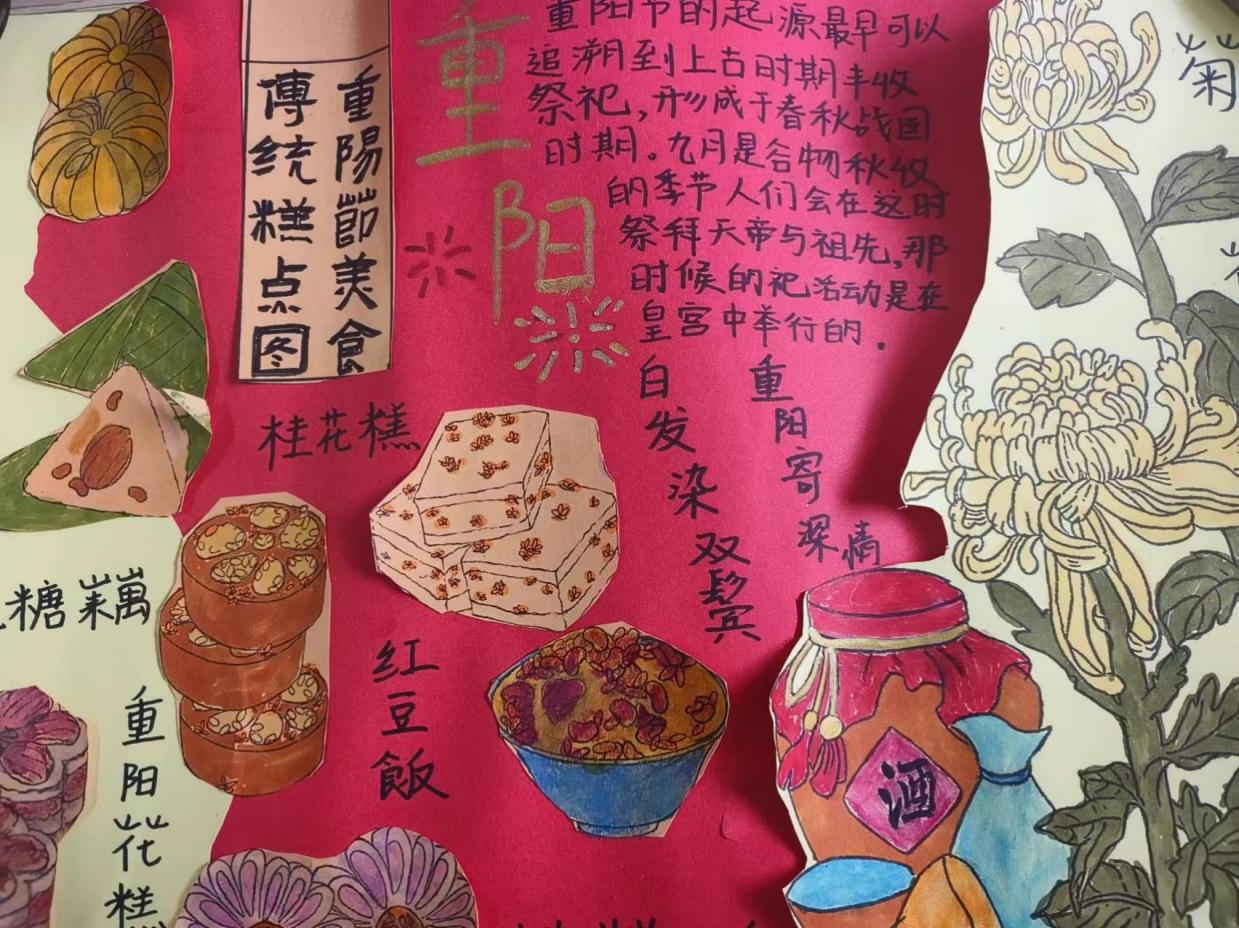 重陽節美食
傳统糕点图
重阳
重阳节的起源最早可以
追溯到上古时期丰收
祭祀，形成于春秋战国
时期。九月是谷物秋收
的季节人们会在这时
祭拜天帝与祖先，那
时候的祀活动是在
皇宫中举行的.
重阳寄深情
白发染双鬓
桂花糕
糖
红豆飯
重阳花糕
酒
菊